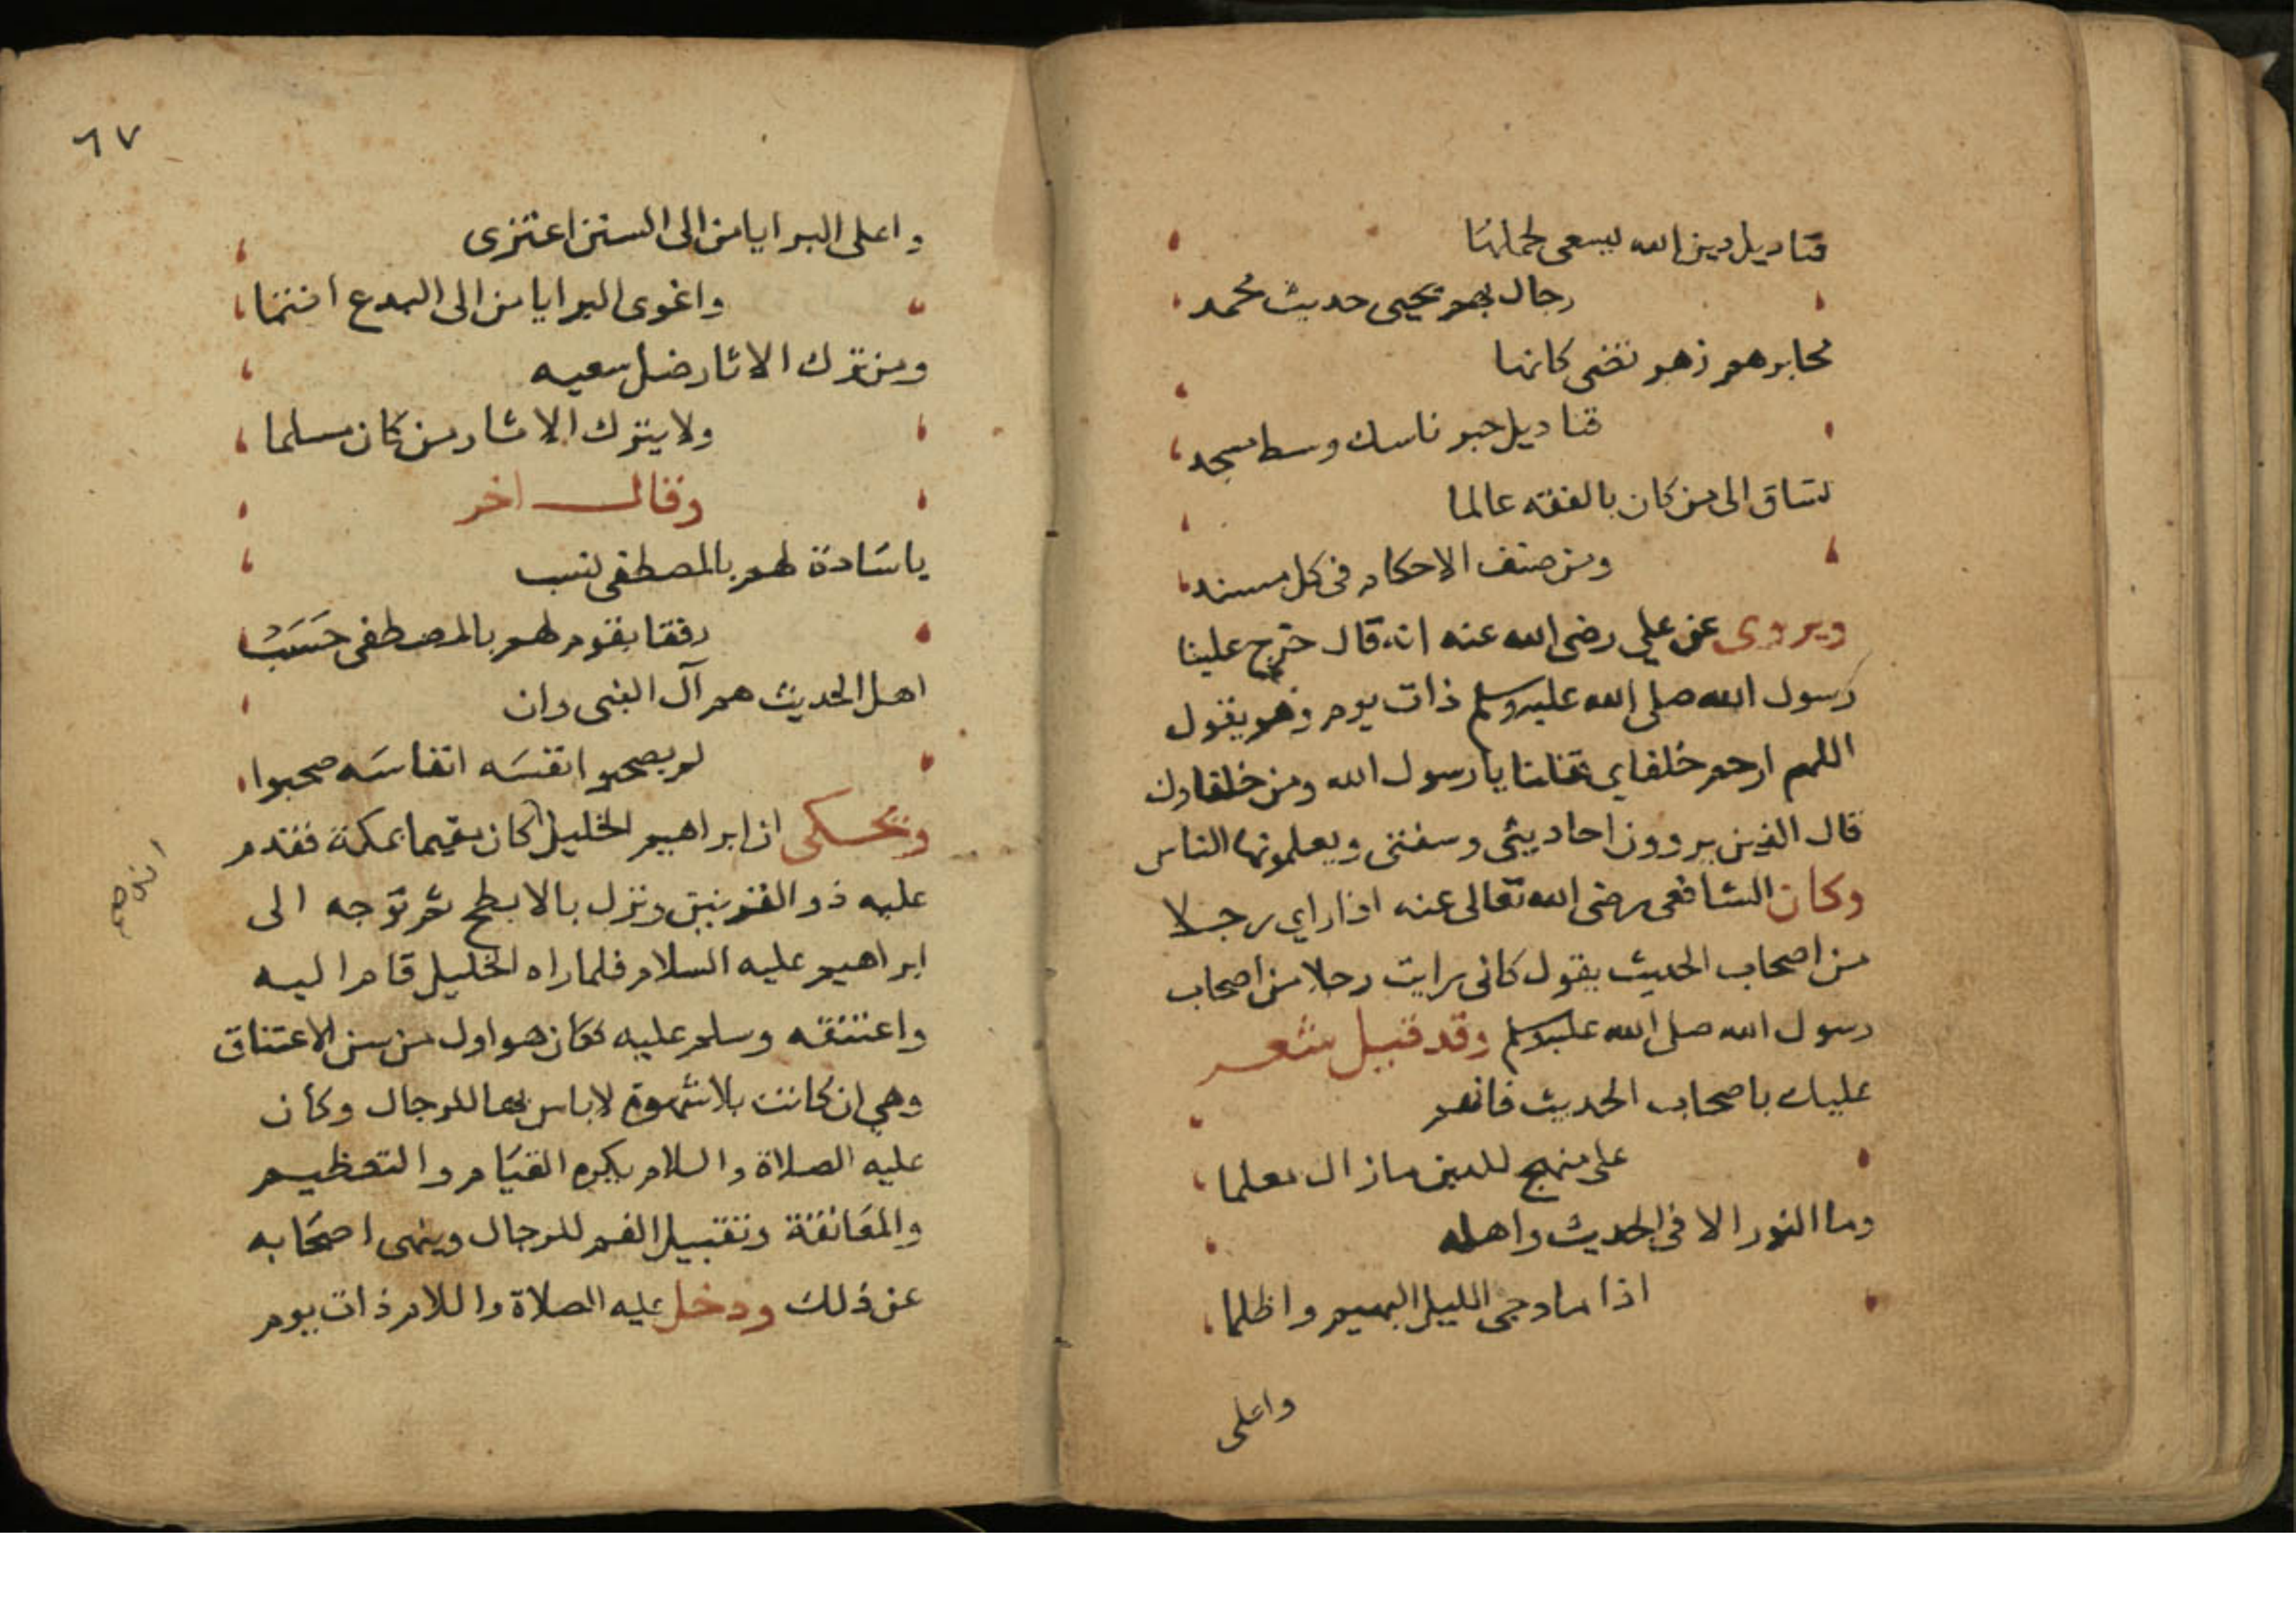 قناديل دين الله يسعى لحملها
رجال بهم يحيى حديث محمد
محابرهم زهر تضى كانها
قناديل حبر ناسك وسط مسجد
تساق الى من كان بالفقه عالما
ومن صنف الاحكام فى كل مسند
ويروى عن علي رضى الله عنه انه قال خرج علينا
رسول الله صلى الله عليه وسلم ذات يوم وهو يقول
اللهم ارحم خلفاي قلنا يا رسول الله ومن خلفاوك
قال الذين يروون احاديثى وسنتى ويعلمونها الناس
وكان الشافعى رضى الله تعالى عنه اذا راي رجلا
من اصحاب الحديث يقول كانى رايت رجلا من اصحاب
رسول الله صلى الله عليه وسلم وقد قيل شعر
عليك باصحاب الحديث فانهم
على منهج للدين مازال معلما
وما النور الا فى الحديث واهله
اذا ما دجى الليل البهيم واظلما
واعلى
٦٧
واعلى البرايا من الى السنن اعتزى
واغوى البرايا من الى البدع انتما
ومن ترك الاثار ضل سعيه
ولا يترك الاثار من كان مسلما
وقال اخر
يا سادة لهم بالمصطفى نسب
رفقا بقوم لهم بالمصطفى حسب
اهل الحديث هم آل النبى وان
لم يصحبوا نفسه انفاسه صحبوا
ويحكى ان ابراهيم الخليل كان مقيما بمكة فقدم
عليه ذو القرنين ونزل بالابطح ثم توجه الى
ابراهيم عليه السلام فلما راه الخليل قام اليه
واعتنقه وسلم عليه فكان هو اول من سن الاعتناق
وهي ان كانت بلا شهوة لا باس بها للرجال وكان
عليه الصلاة والسلام يكره القيام والتعظيم
والمعانقة وتقبيل الفم للرجال وينهى اصحابه
عن ذلك ودخل عليه الصلاة والسلام ذات يوم